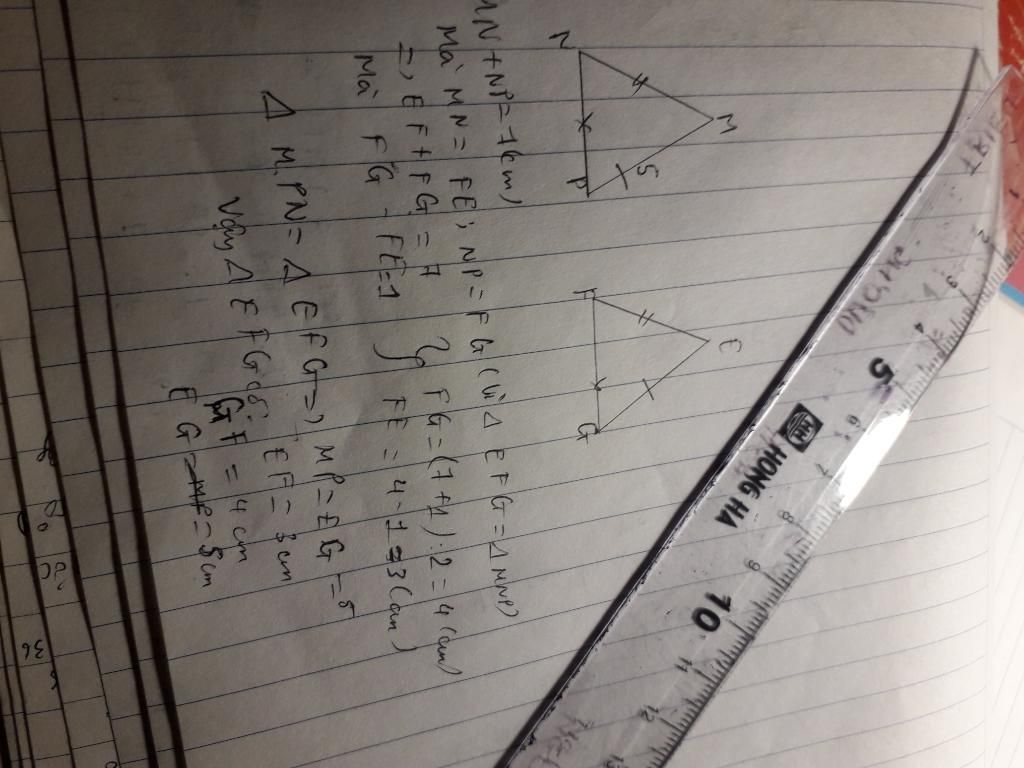 M
N
P
5
E
F
G
MN + NP = 7 (cm)
Mà MN = FE; NP = FG (vì Δ EFG = Δ MNP)
=> EF + FG = 7
Mà FG - FE = 1
FG = (7+1) : 2 = 4 (cm)
FE = 4 - 1 = 3 (cm)
Δ MPN = Δ EFG => MP = EG = 5
Vậy Δ EFG có EF = 3 cm
GF = 4 cm
EG = 5 cm
HONG HA
HH
2
3
4
5
6
7
8
9
10
11
12
13
36